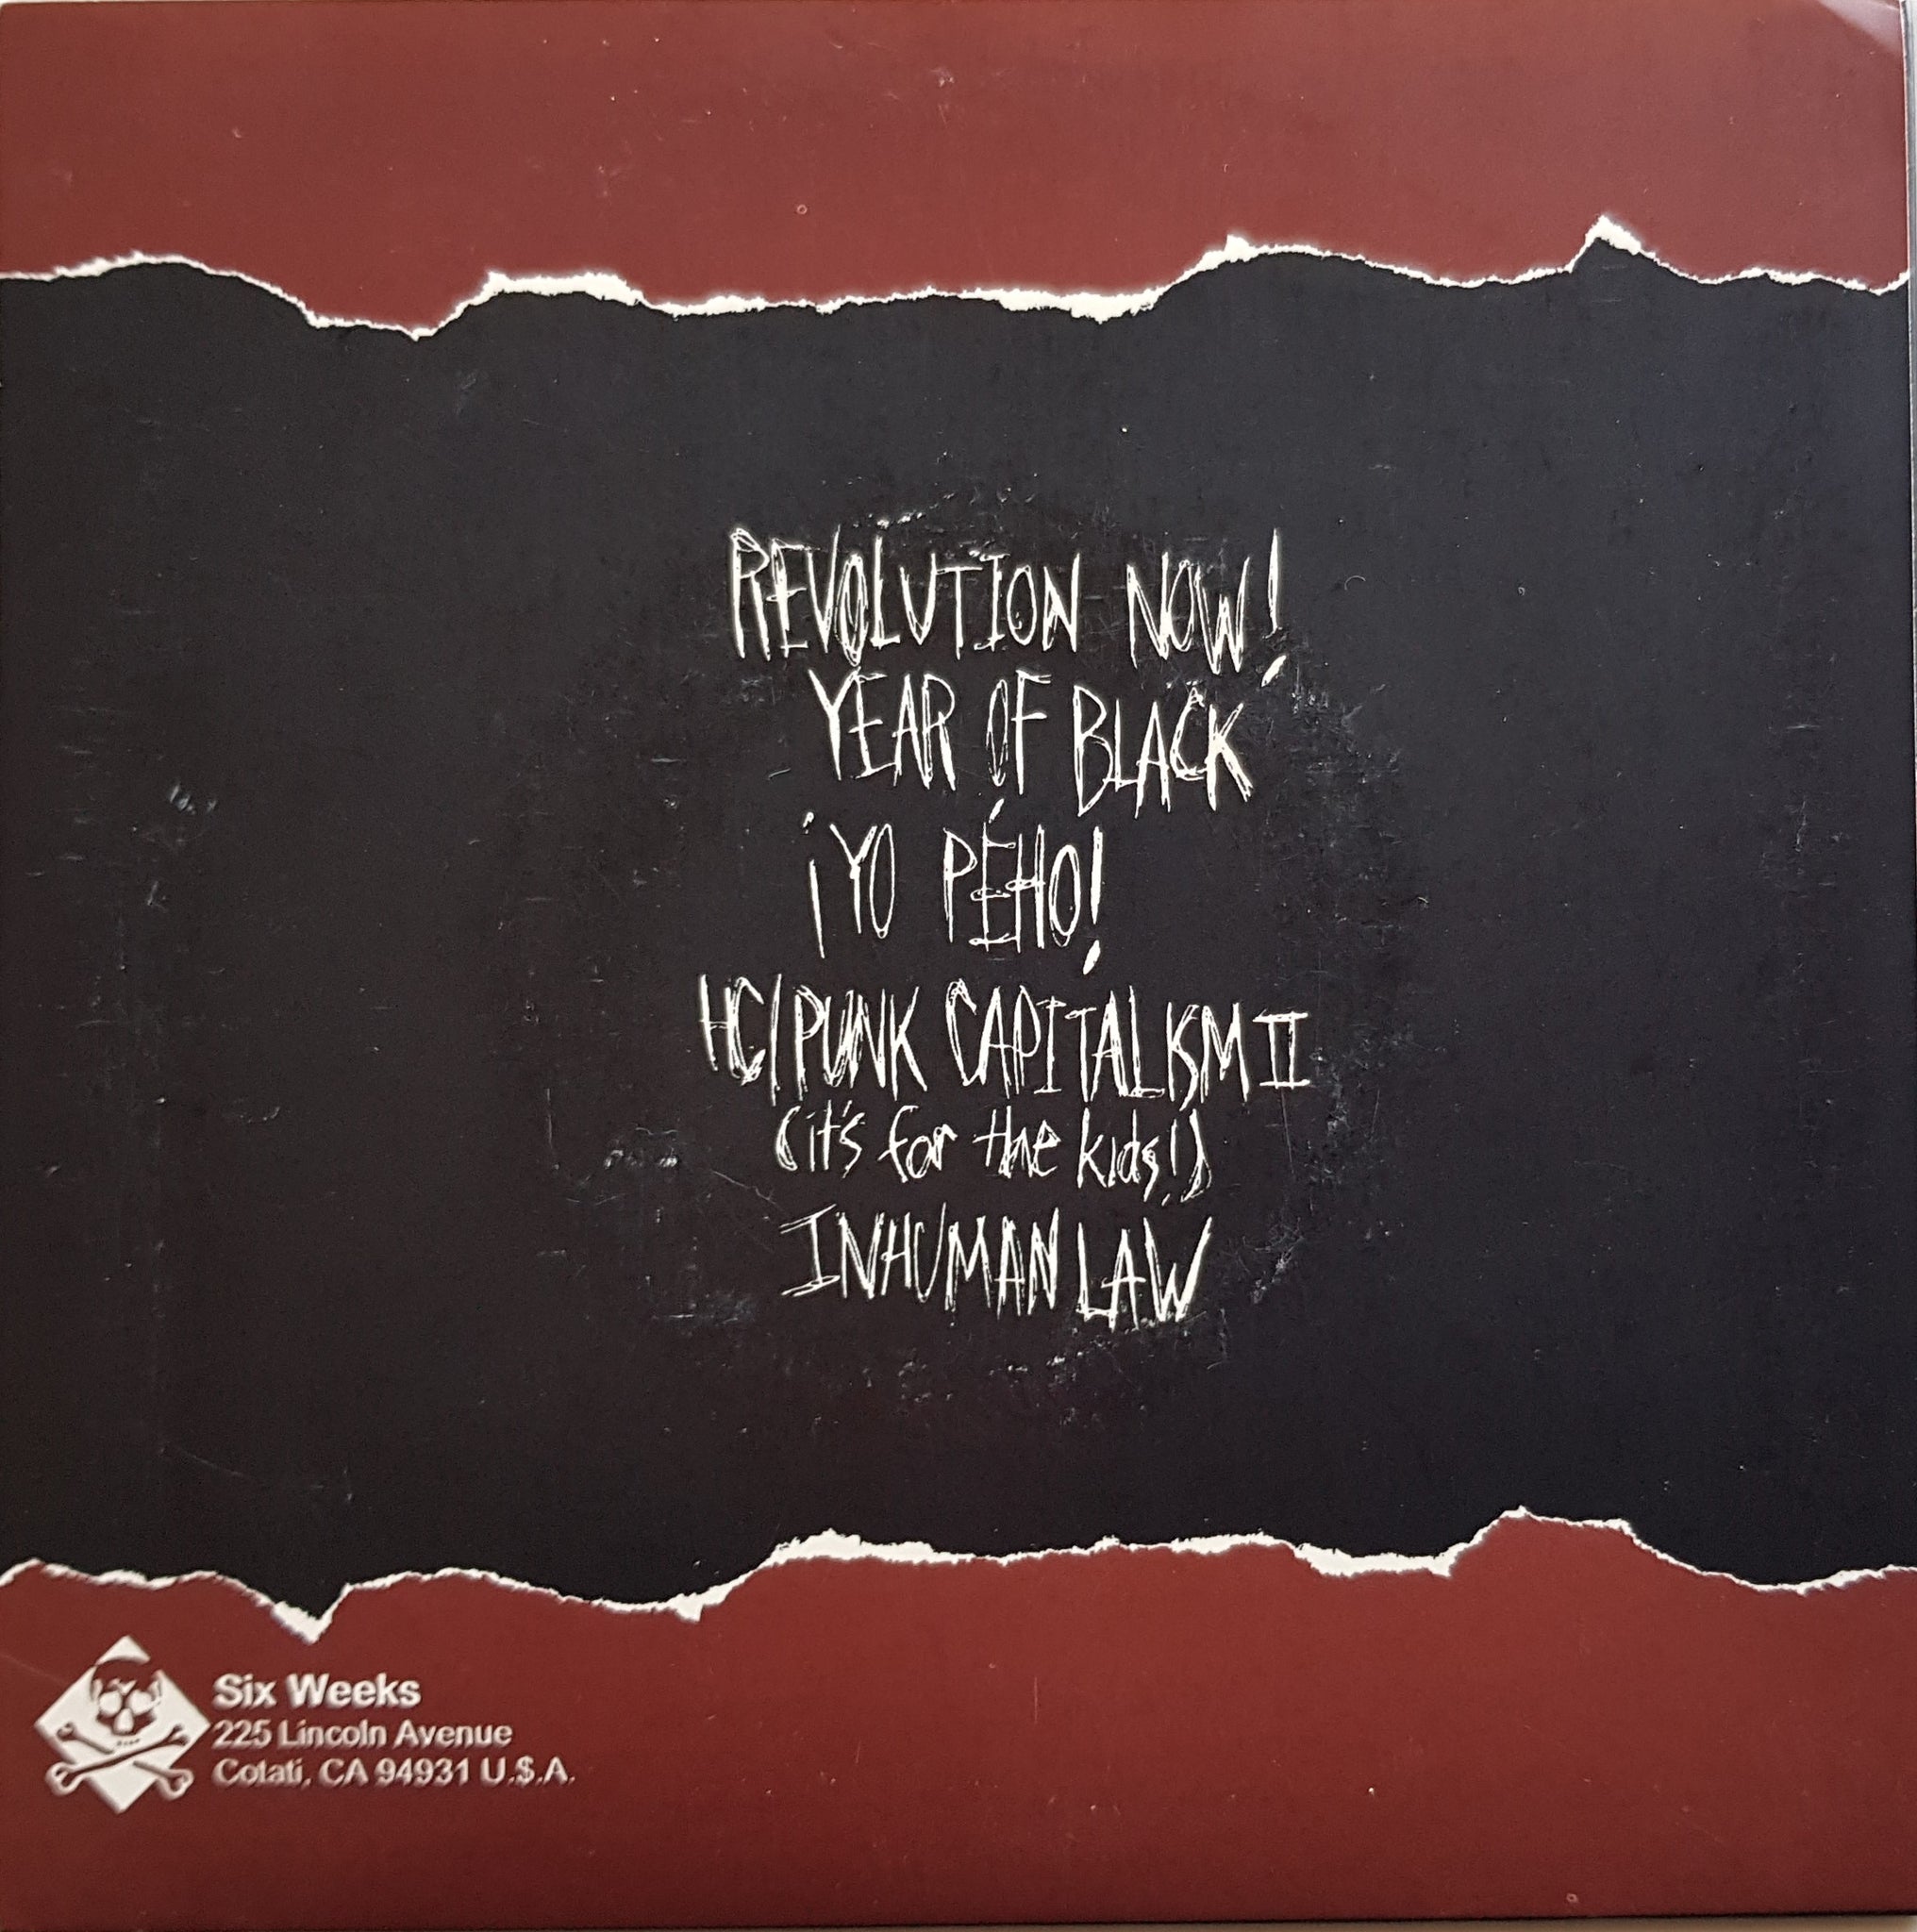 REVOLUTION NOW!
YEAR OF BLACK
¡YO PÉHO!
HC/PUNK CAPITALISM II
(it's for the kids!)
INHUMAN LAW
Six Weeks
225 Lincoln Avenue
Cotati, CA 94931 U.$.A.